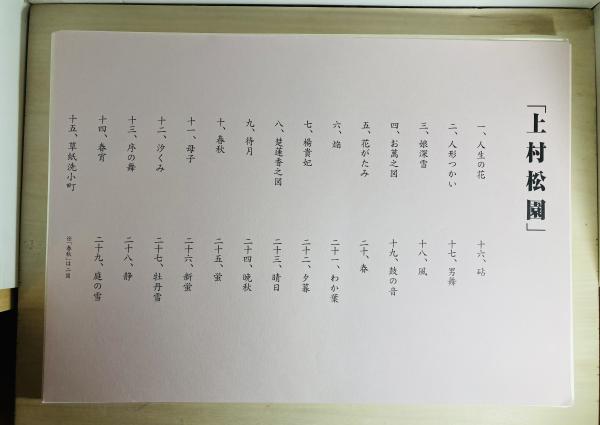 「上村松園」
一、人生の花
二、人形つかい
三、娘深雪
四、お萬之図
五、花がたみ
六、焔
七、楊貴妃
八、楚蓮香之図
九、待月
十、春秋
十一、母子
十二、汐くみ
十三、序の舞
十四、春宵
十五、草紙洗小町
十六、砧
十七、男舞
十八、風
十九、鼓の音
二十、春
二十一、わか葉
二十二、夕暮
二十三、晴日
二十四、晩秋
二十五、蛍
二十六、新蛍
二十七、牡丹雪
二十八、静
二十九、庭の雪
注、「春秋」は二図